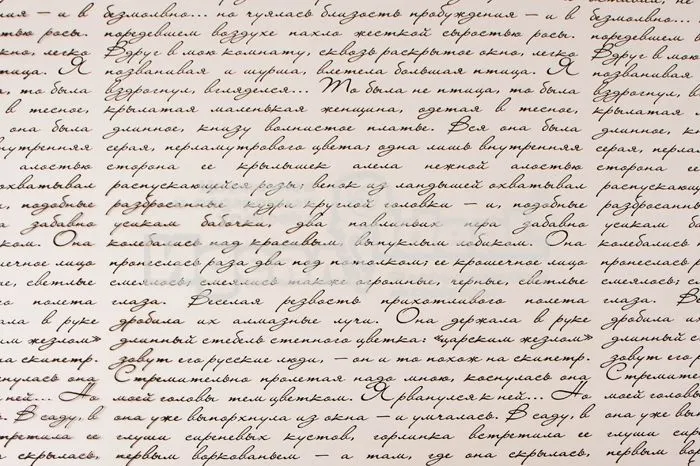 ния – и в
тью росы.
кно, легко
тица. Я
, то была
в тесное,
она была
нутренняя
алостью
охватывал
, подобные
забавно
ком. Она
шечное лицо
, светлые
го полета
ала в руке
им жезлом»
на скипетр.
снулась она
ней... Но
. В саду, в
третила ее
скрылась,
безмолвно... но чуялась близость пробуждения – и в
поредевшем воздухе пахло жесткой сыростью росы.
Вдруг в мою комнату, сквозь раскрытое окно, легко
позванивая и шурша, влетела большая птица. Я
вздрогнул, вгляделся... То была не птица, то была
крылатая маленькая женщина, одетая в тесное,
длинное, книзу волнистое платье. Вся она была
серая, перламутрового цвета; одна лишь внутренняя
сторона ее крылышек алела нежной алостью
распускающейся розы; венок из ландышей охватывал
разбросанные кудри круглой головки – и, подобные
усикам бабочки, два павлиньих пера забавно
колебались над красивым, выпуклым лобиком. Она
пронеслась раза два под потолком; ее крошечное лицо
смеялось; смеялись также огромные, черные, светлые
глаза. Веселая резвость прихотливого полета
дробила их алмазные лучи. Она держала в руке
длинный стебель степного цветка: «царским жезлом»
зовут его русские люди, – он и то похож на скипетр.
Стремительно пролетая надо мною, коснулась она
моей головы тем цветком. Я рванулся к ней... Но
она уже выпорхнула из окна – и умчалась. В саду, в
глуши сиреневых кустов, горлинка встретила ее
первым воркованьем – а там, где она скрылась,
безмолвно...
поредевшем в
Вдруг в мою
позванивая
вздрогнул, в
крылатая м
длинное, к
серая, перла
сторона ее
распускающ
разбросанны
усикам ба
колебались
пронеслась р
смеялось; с
глаза. В
дробила и
длинный с
зовут его
Стремите
моей голов
она уже вы
глуши си
первым вор